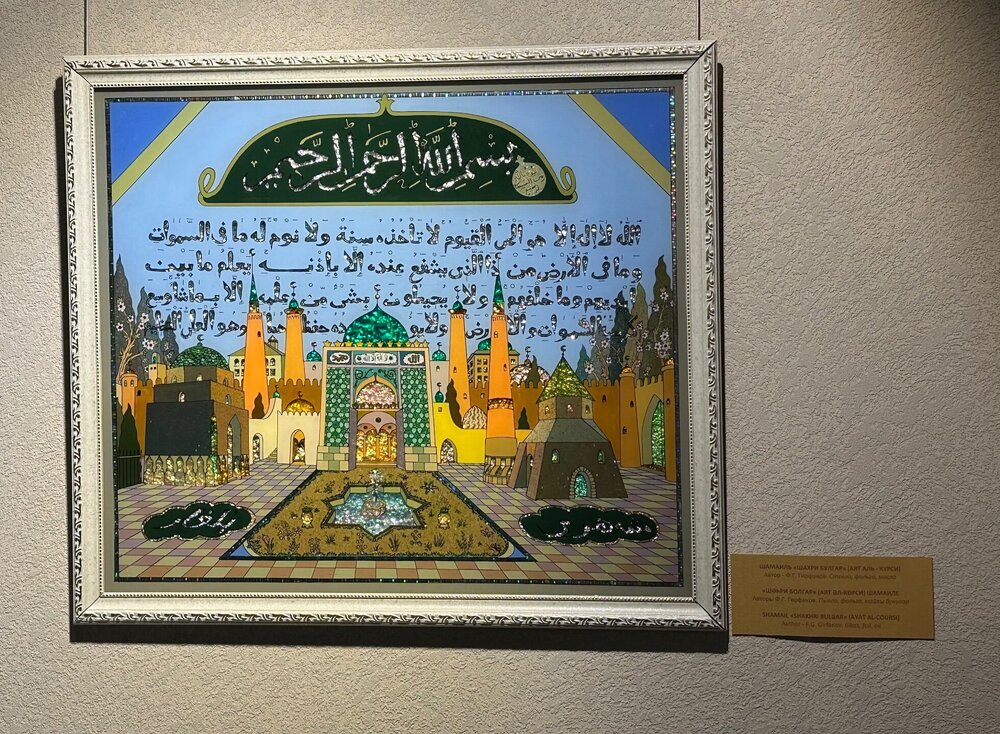 بسم الله الرحمن الرحيم
الله لا اله الا هو الحى القيوم لا تأخذه سنة ولا نوم له ما فى السموات
وما فى الارض من ذا الذى يشفع عنده الا باذنه يعلم ما بين
وما خلفهم ولا يحيطون بشئ من علمه الا بما شاء وسع
السموات والارض وهو العلى العظيم
الله لا اله الا الله محمد
شهرى بلغار
ШАМАИЛЬ «ШАХРИ БУЛГАР» (АЯТ АЛЬ - КУРСИ)
Автор - Ф.Г. Гирфанов. Стекло, фольга, масло
«ШӘҺРИ БОЛГАР» (АЯТ ӘЛ-КӨРСИ) ШАМАИЛЕ
Авторы Ф.Г. Гирфанов. Пыяла, фольга, майлы буяулар
SHAMAIL «SHAKHRI BULGAR» (AYAT AL-COURSI)
Author - F.G. Girfanov. Glass, foil, oil